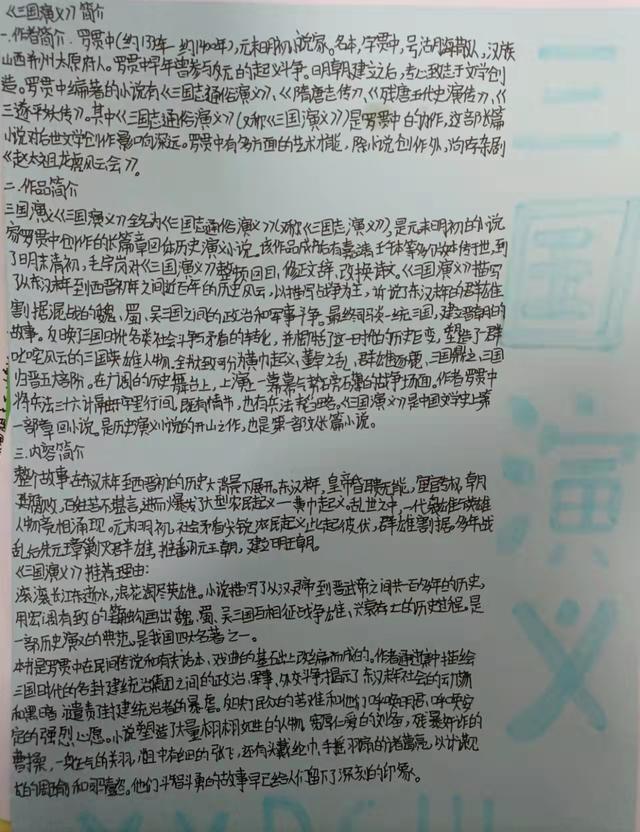 《三国演义》简介
一.作者简介.罗贯中(约1330年—约1400年),元末明初小说家。名本,字贯中,号湖海散人,汉族
山西并州太原府人。罗贯中早年曾参与反元的起义斗争。明朝建立之后,专心致志于文学创
造。罗贯中编著的小说有《三国志通俗演义》、《隋唐志传》、《残唐五代史演传》、《
三遂平妖传》。其中《三国志通俗演义》(又称《三国演义》)是罗贯中的力作,这部长篇
小说对后世文学创作影响深远。罗贯中有多方面的艺术才能,除小说创作外,尚存杂剧
《赵太祖龙虎风云会》。
二.作品简介
三国演义《三国演义》全名为《三国志通俗演义》(又称《三国志演义》),是元末明初的小说
家罗贯中创作的长篇章回体历史演义小说。该作品成书后有嘉靖壬午本等多个版本传于世,到
了明末清初,毛宗岗对《三国演义》整顿回目,修正文辞,改换诗文。《三国演义》描写
了从东汉末年到西晋初年之间近百年的历史风云,以描写战争为主,诉说了东汉末年的群雄
割据混战的魏、蜀、吴三国之间的政治和军事斗争。最终司马炎一统三国,建立晋朝的
故事。反映了三国时代各类社会斗争与矛盾的转化,并概括了这一时代的历史巨变,塑造了一群
叱咤风云的三国英雄人物。全书大致可分黄巾起义、董卓之乱、群雄逐鹿、三国鼎立、三国
归晋五大部分。在广阔的历史舞台上,上演了一幕幕气势磅礴的战争场面。作者罗贯中
将兵法三十六计融于字里行间,既有情节,也有兵法韬略。《三国演义》是中国文学史上第
一部章回小说。是历史演义小说的开山之作,也是第一部文人长篇小说。
三.内容简介
整个故事在东汉末年到西晋初的历史大背景下展开。东汉末年,皇帝昏聩无能,宦官专权,朝
政腐败,百姓苦不堪言,进而爆发了大型农民起义—黄巾起义。乱世之中,一代枭雄与英雄
人物竞相涌现。元末明初,社会矛盾尖锐,农民起义此起彼伏,群雄割据。多年战
乱后朱元璋剿灭群雄,推翻元王朝,建立明王朝。
《三国演义》推荐理由:
滚滚长江东逝水,浪花淘尽英雄。小说描写了从汉灵帝到晋武帝之间共一百多年的历史,
用宏阔有致的笔触勾画出魏、蜀、吴三国互相征战争雄,兴衰存亡的历史过程。是
一部历史演义的典范。是我国四大名著之一。
本书是罗贯中在民间传说和有关话本、戏曲的基础上改编而成的。作者通过集中描绘
三国时代的各封建统治集团之间的政治、军事、外交斗争,揭示了东汉末年社会的动荡
和黑暗,谴责了封建统治者的暴虐。反映了民众的苦难和他们呼唤明君、呼唤安
定的强烈心愿。小说塑造了大量栩栩如生的人物。宽厚仁爱的刘备,残暴奸诈的
曹操,一身正气的关羽,粗中有细的张飞,还有头戴纶巾,手摇羽扇的诸葛亮,以计谋见
长的周瑜和司马懿。他们斗智斗勇的故事早已给人们留下了深刻的印象。
三国演义